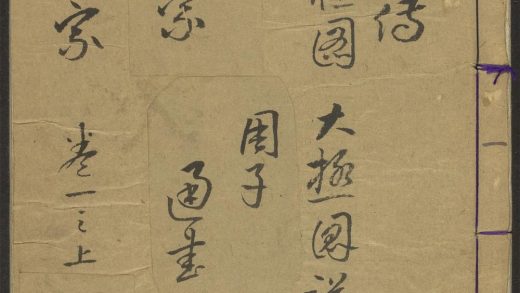 傳
圖
大極圖説
周子
通書
宗
宗
卷一之上
一